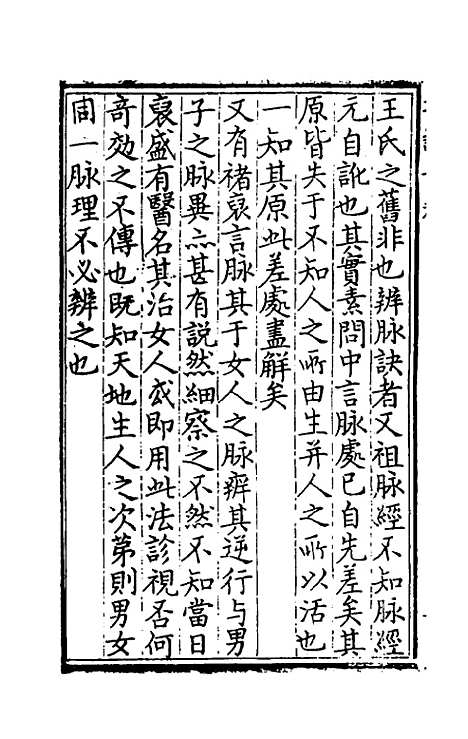 王氏之舊非也辨脉訣者又祖脉經不知脉經
元自訛也其實素問中言脉處已自先差矣其
原皆失于不知人之所由生并人之所以活也
一知其原此差處盡解矣
又有褚裒言脉其于女人之脉辨其逆行与男
子之脉異亦甚有説然細察之不然不知當日
裒盛有醫名其治女人或即用此法診視否何
竒効之不傳也既知天地生人之次第則男女
固一脉理不必辨之也